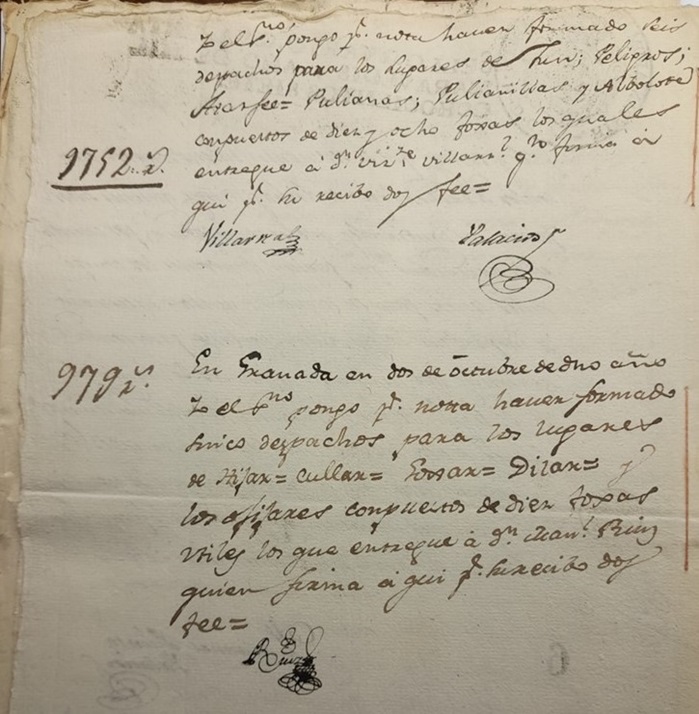 Yo el Sno. pongo pr. nota haver formado seis
despachos para los lugares de Jun; Peligros;
Atarfee= Pulianas; Pulianillas y Albolote
conpuestos de diez y ocho foxas los quales
9752 rs.
entregue à Dn. Vizte. Villarrl. qn. firma
aqui pr. su recibo doy fee=
Villarreal
Palacios
En Granada en dos de Octubre de dho año
979 rs.
Yo el Sno pongo pr. notta haver formado
sinco despachos para los lugares
de Hijar= Cullar= Gojar= Dilar= y
los Ojijares conpuestos de diez foxas
utiles los que entregue à Dn. Manl. Ruiz
quien firma aqui pr. su recibo doy
fee=
Ruiz